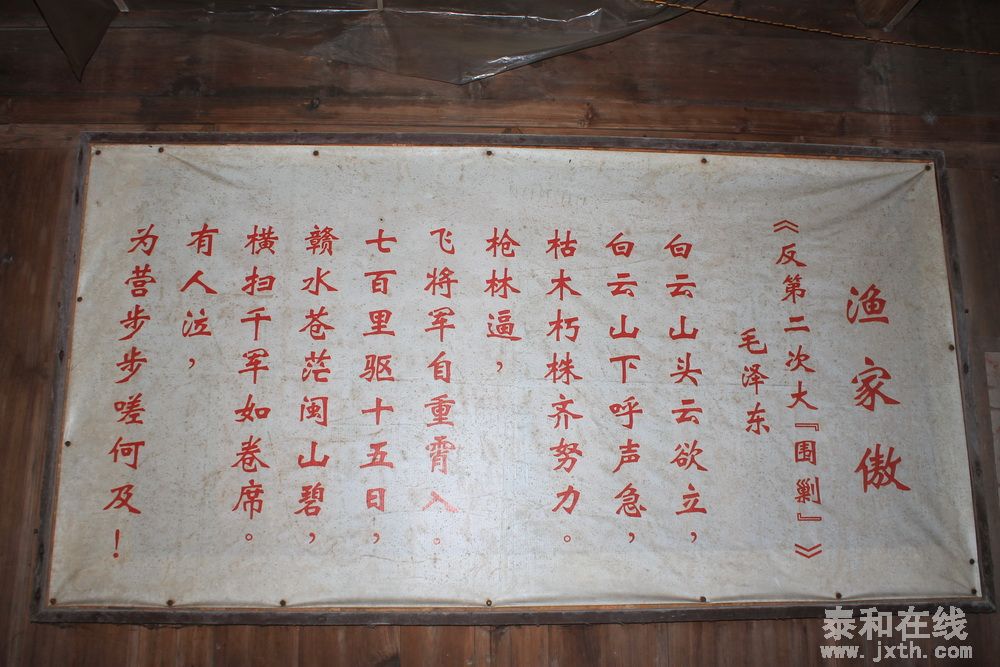 渔家傲
《反第二次大『围剿』》
毛泽东
白云山头云欲立，
白云山下呼声急，
枯木朽株齐努力。
枪林逼，
飞将军自重霄入。
七百里驱十五日，
赣水苍茫闽山碧，
横扫千军如卷席。
有人泣，
为营步步嗟何及！
泰和在线
www.jxth.com